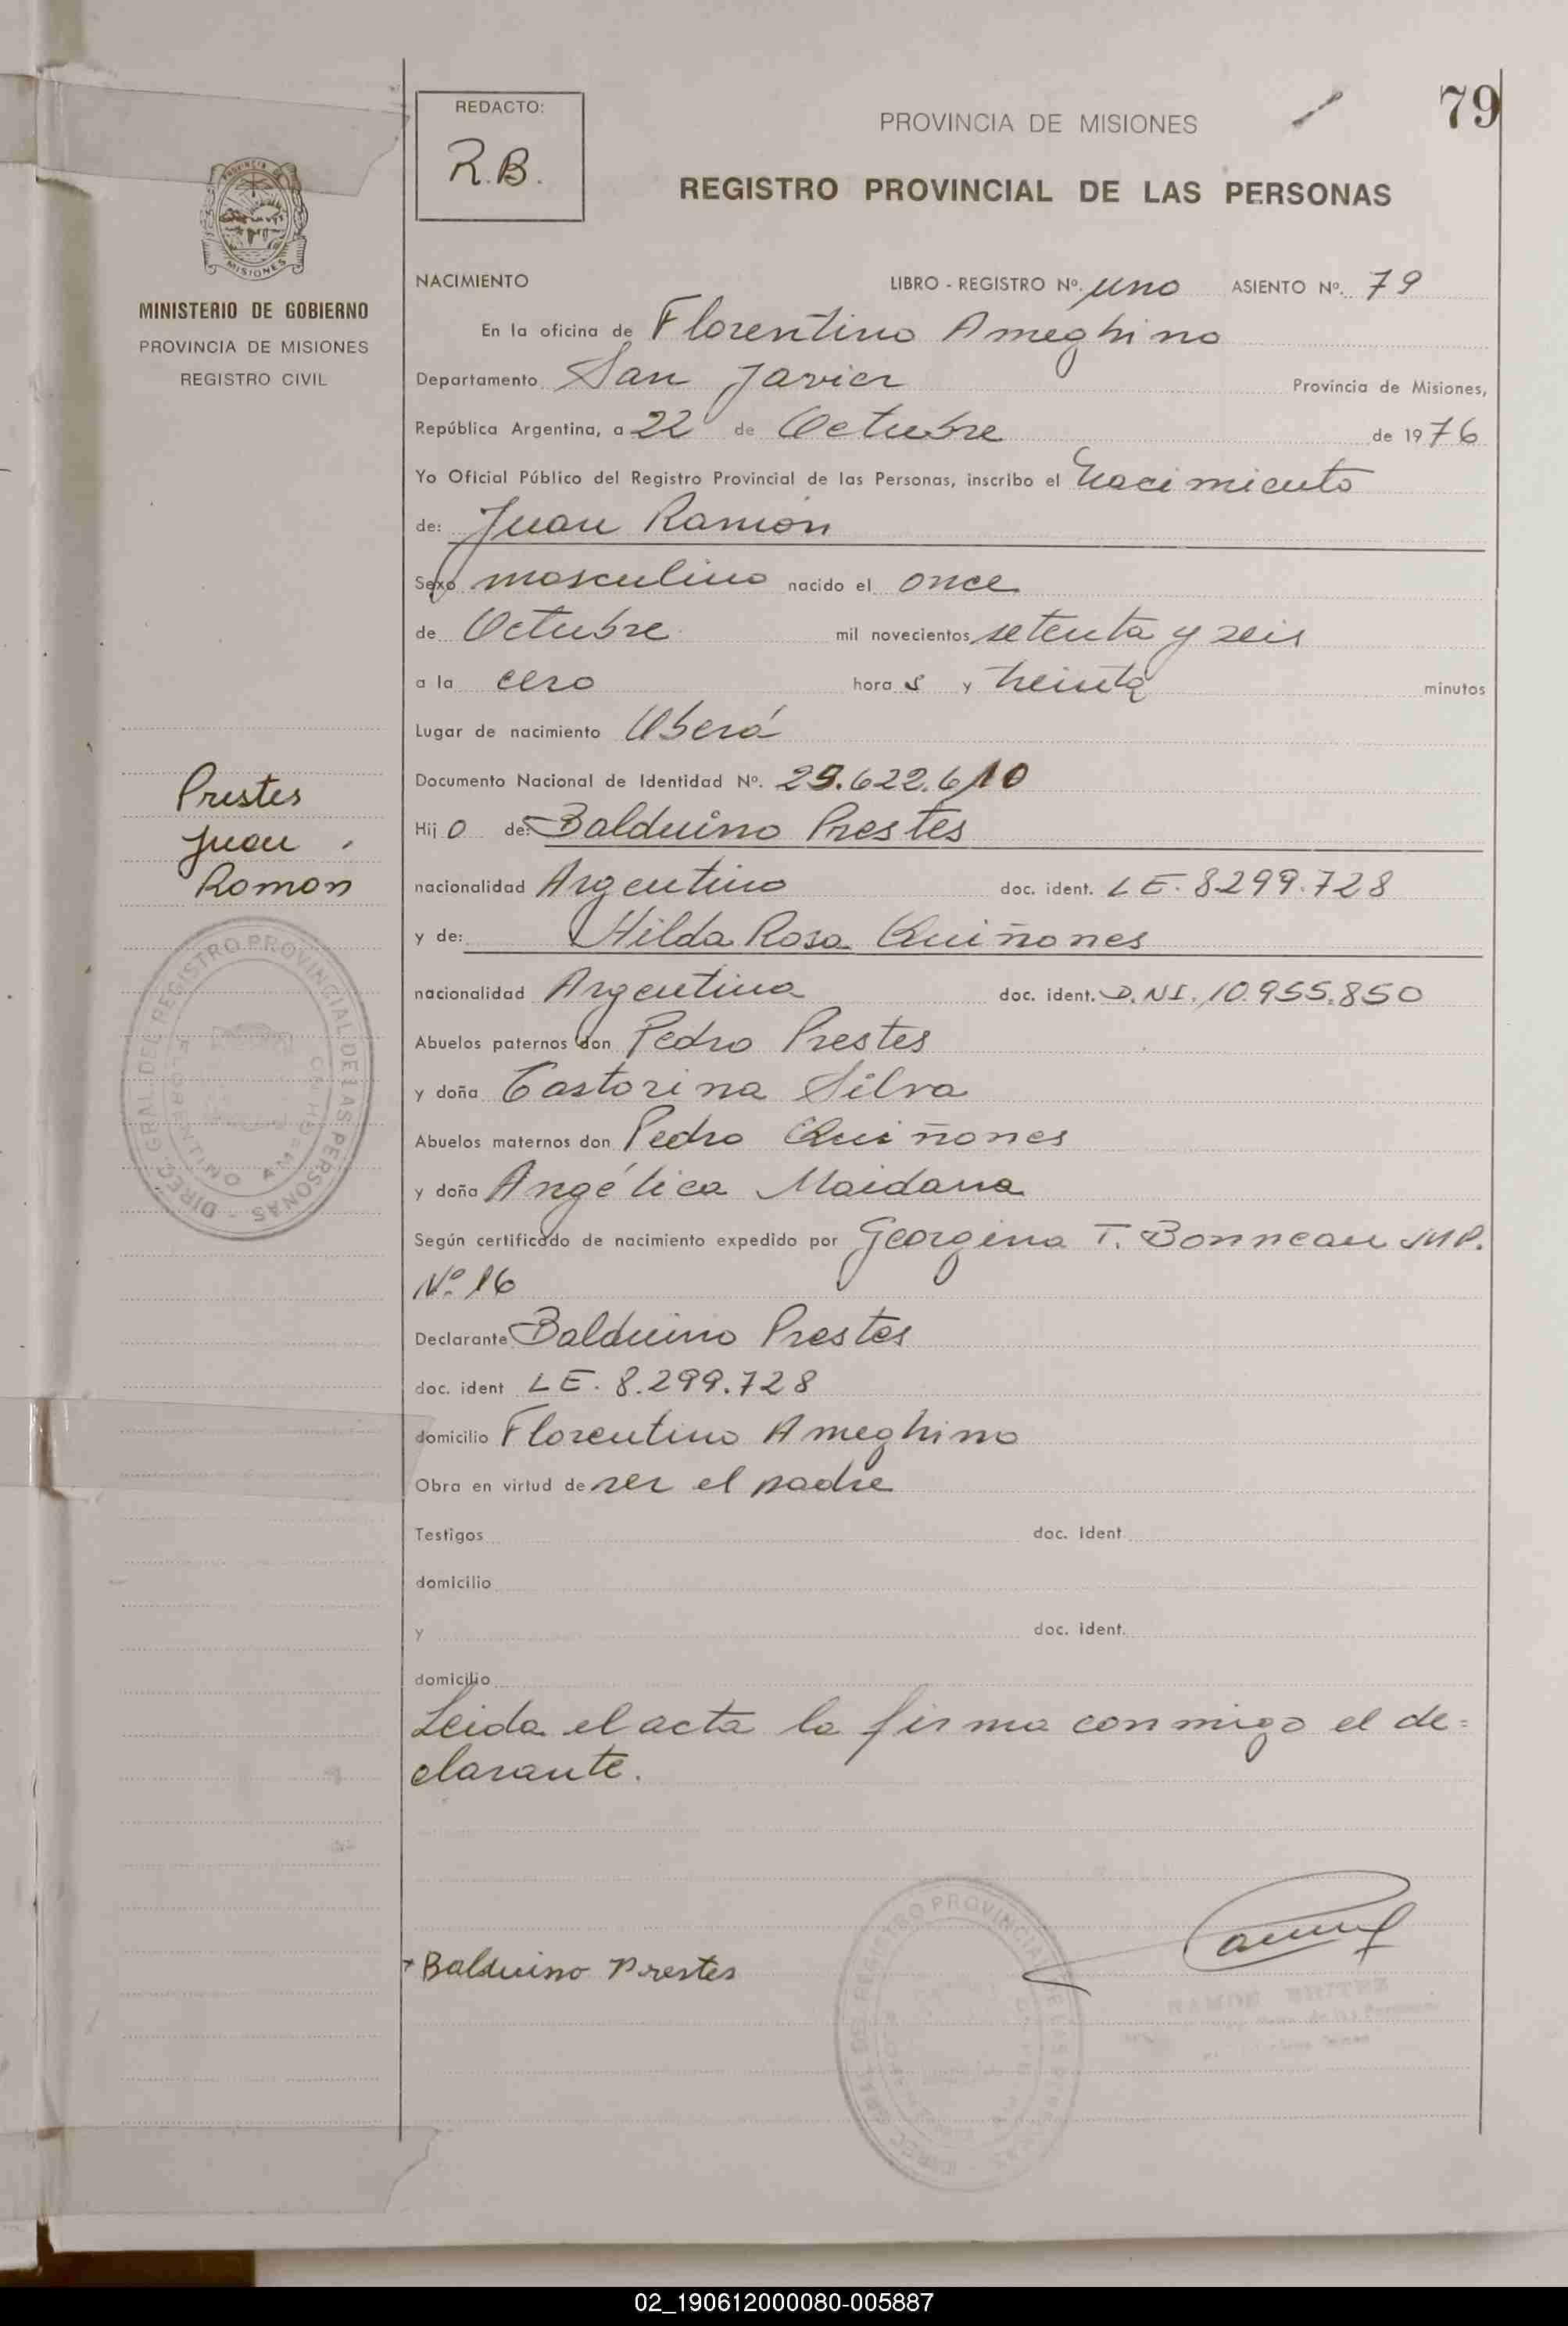 REDACTO:
R.B.
PROVINCIA DE MISIONES
79
REGISTRO PROVINCIAL DE LAS PERSONAS
PROVINCIA DE
MISIONES
MINISTERIO DE GOBIERNO
PROVINCIA DE MISIONES
REGISTRO CIVIL
NACIMIENTO LIBRO - REGISTRO Nº. uno ASIENTO Nº. 79
En la oficina de Florentino Ameghino
Departamento San Javier Provincia de Misiones,
República Argentina, a 22 de Octubre de 1976
Yo Oficial Público del Registro Provincial de las Personas, inscribo el Nacimiento
de: Juan Ramón
Sexo masculino nacido el once
de Octubre mil novecientos setenta y seis
a la cero hora s y treinta minutos
Lugar de nacimiento Oberá
Documento Nacional de Identidad Nº. 25.622.610
Prestes
Juan
Ramon
Hijo de: Balduino Prestes
nacionalidad Argentino doc. ident. LE. 8299.728
y de: Hilda Rosa Quiñones
nacionalidad Argentina doc. ident. D.NI. 10.955.850
Abuelos paternos don Pedro Prestes
y doña Castorina Silva
Abuelos maternos don Pedro Quiñones
y doña Angélica Maidana
DIREC. GRAL. DEL REGISTRO PROVINCIAL DE LAS PERSONAS
FLORENTINO AMEGHINO
Según certificado de nacimiento expedido por Georgina T. Bonneau MP.
Nº 16
Declarante Balduino Prestes
doc. ident LE. 8.299.728
domicilio Florentino Ameghino
Obra en virtud de ser el padre
Testigos doc. ident.
domicilio
y doc. ident.
domicilio
Leida el acta la firma conmigo el de=
clarante.
Balduino Prestes
02_190612000080-005887